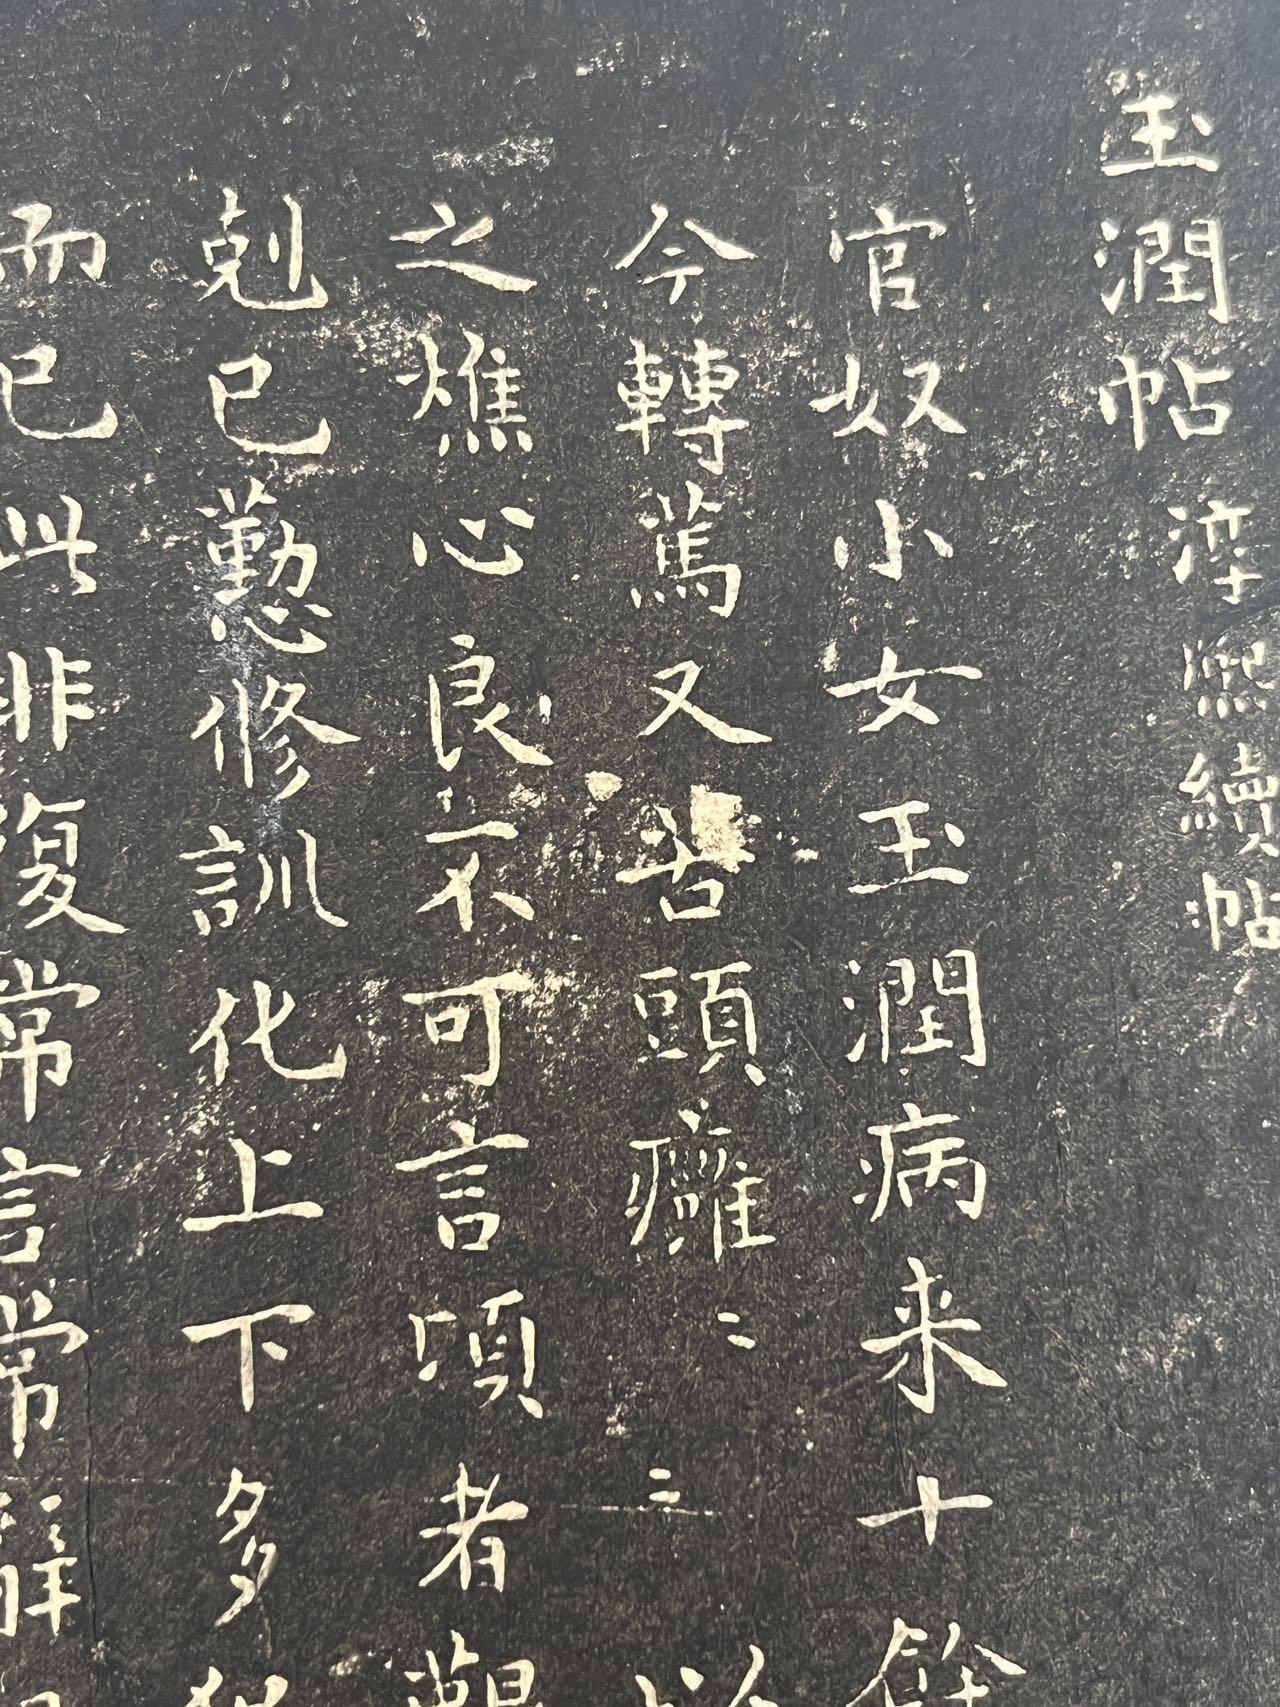 玉潤帖 淳熙續帖
官奴小女玉潤病来十餘
今轉篤又苦頭癰〻〻以
之燋心良不可言頃者艱
剋己懃修訓化上下多犯
而已此非復常言常辭